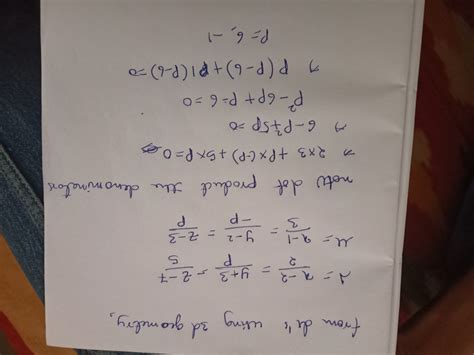 from dr's using 3d geometry,
λ = x-2/2 = y+3/p = z-7/5
μ = x-1/3 = y-2/-p = z-3/p
now dot product the denominator
⇒ 2×3 + p×(-p) + 5×p = 0
⇒ 6-p²+5p = 0
p²-6p+p-6 = 0
⇒ p(p-6)+1(p-6)=0
p = 6, -1